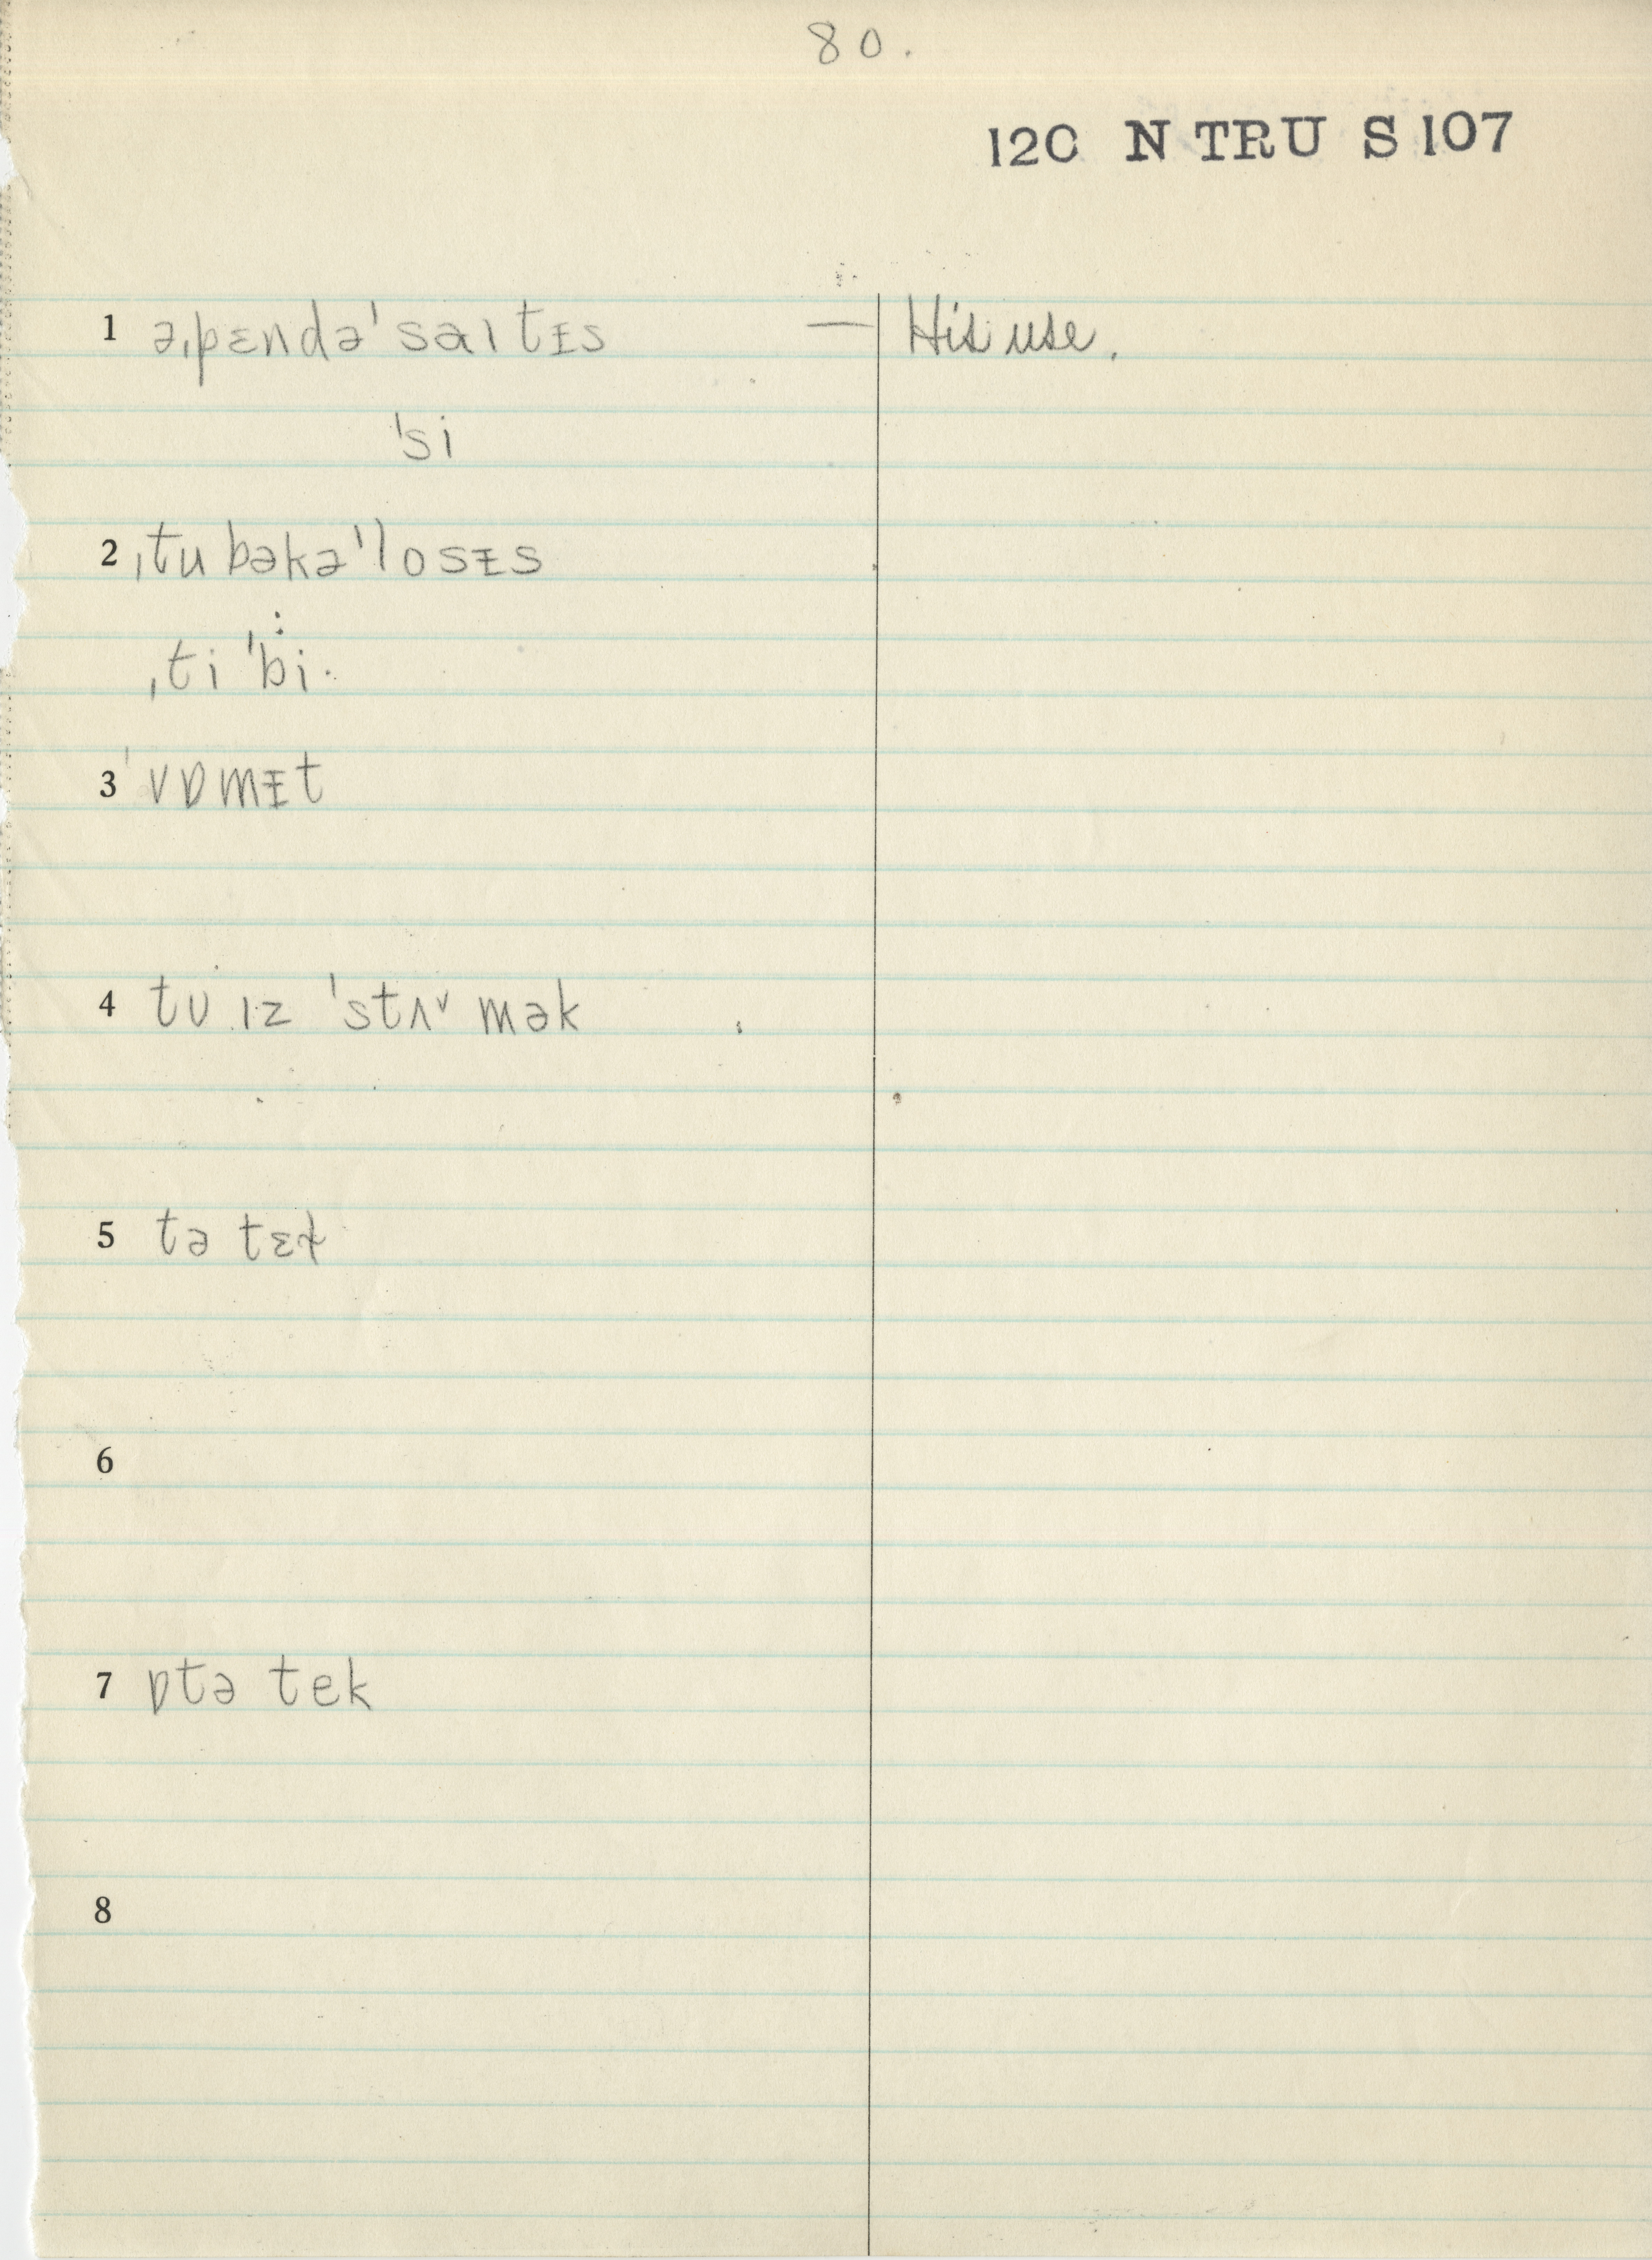 80.
12C N TRU S 107
1 əˌpɛndə'saɪtᵻs — His use.
'si
2 ˌtubəkə'losᵻs
ˌti 'bi·
3 'vɒmᵻt
4 tu ɪz 'stʌ˅mək
5 tə tɛk
6
7 ɒtə tek
8